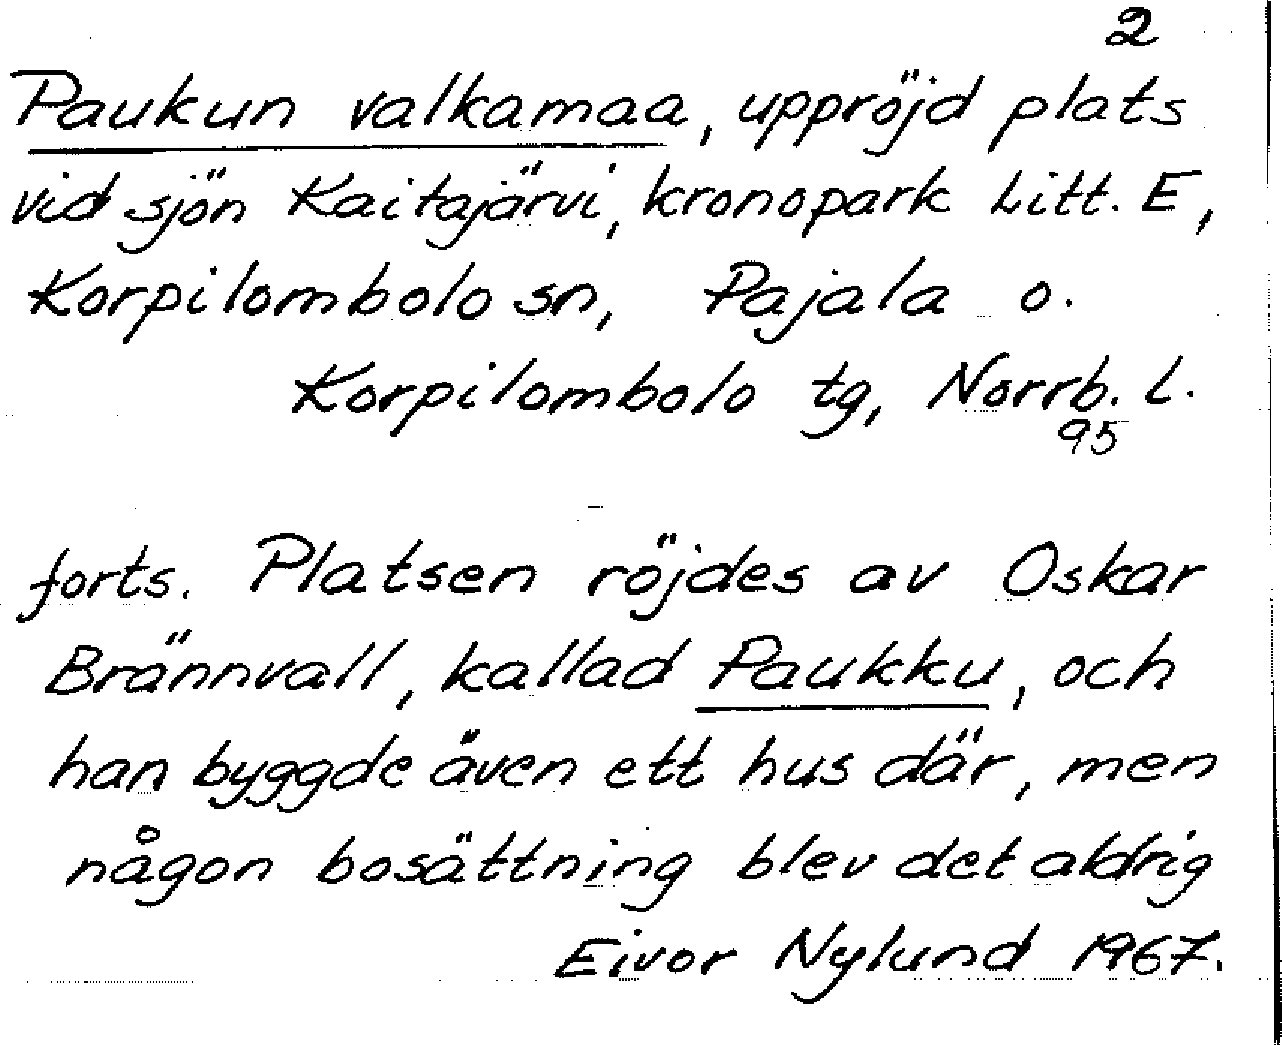 2
Paukun valkamaa, uppröjd plats
vid sjön Kaitajärvi, kronopark Litt. E,
Korpilombolo sn, Pajala o.
Korpilombolo tg, Norrb. L.
95
forts. Platsen röjdes av Oskar
Brännvall, kallad Paukku, och
han byggde även ett hus där, men
någon bosättning blev det aldrig
Eivor Nylund 1967.